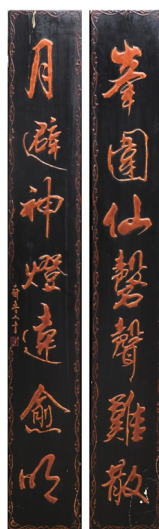 峯圍仙磬聲難散
月避神燈遠愈明